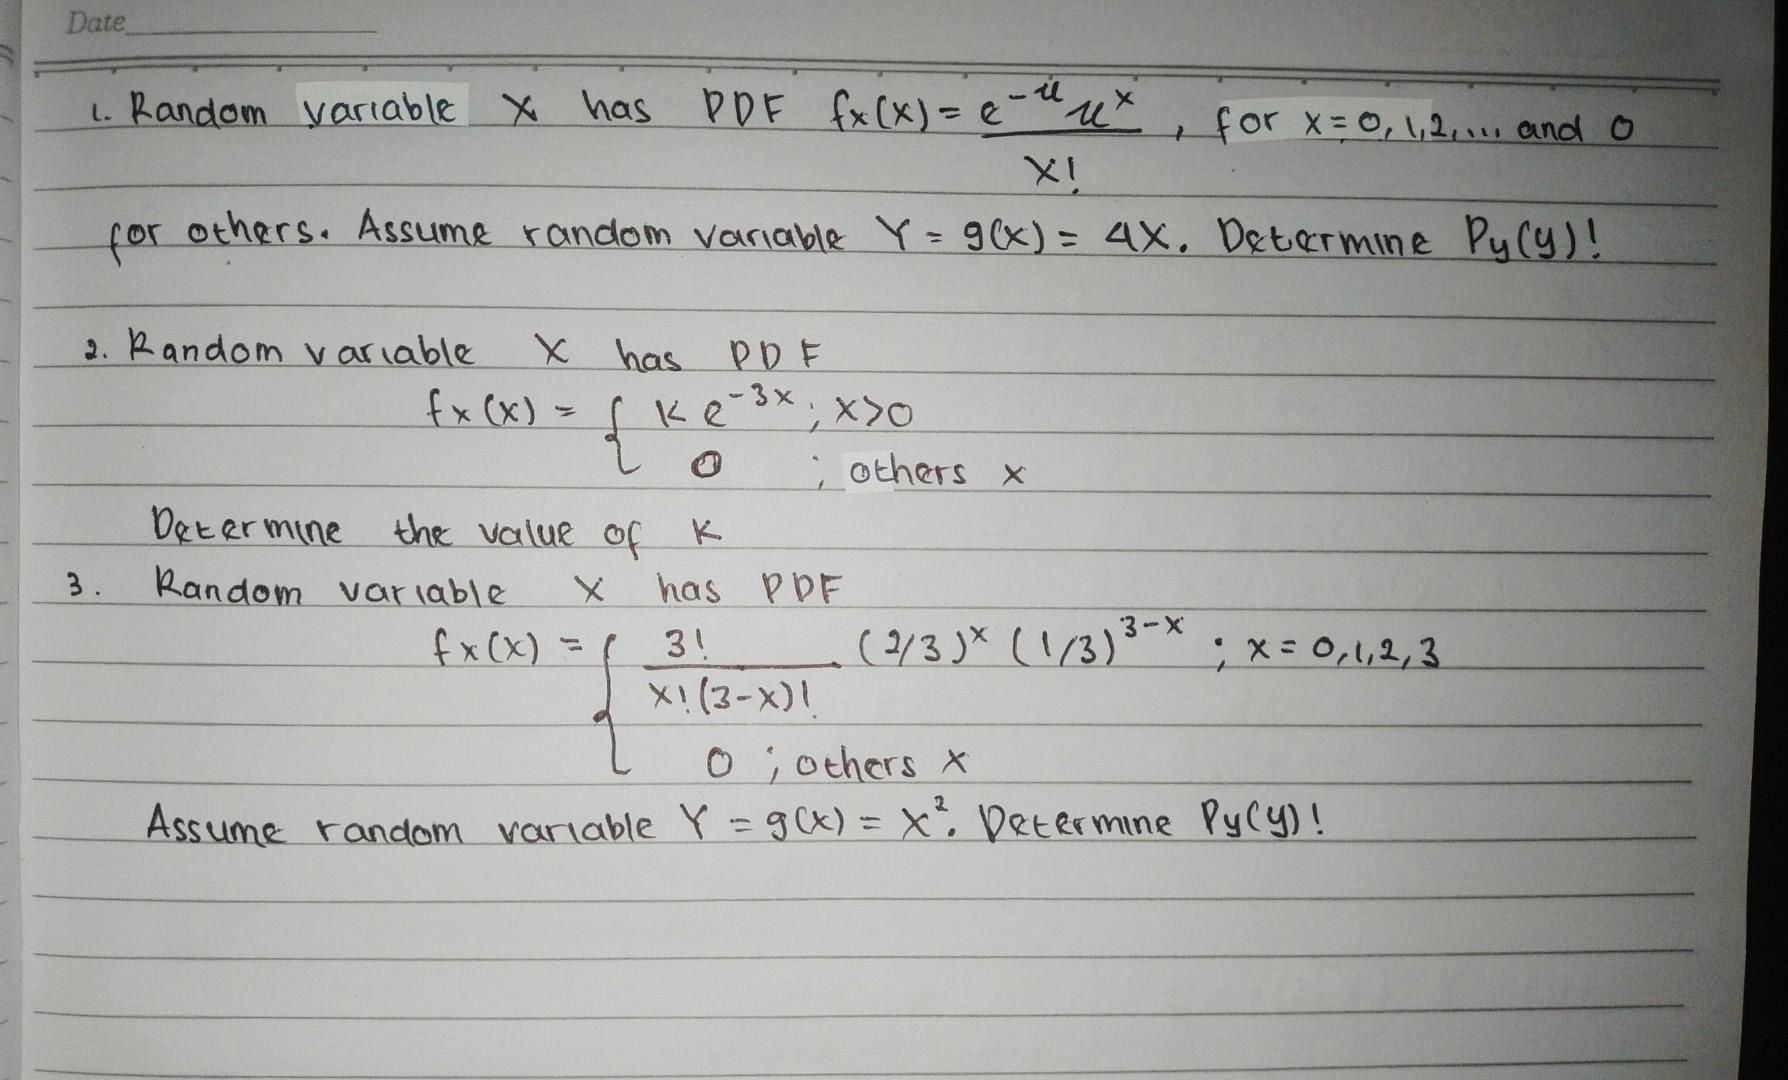 Date
1. Random variable X has PDF fx(x) = e^-u u^x / x! , for x = 0, 1, 2, ... and 0
for others. Assume random variable Y = g(x) = 4X. Determine Py(y)!
2. Random variable X has PDF
fx(x) = { K e^-3x ; x>0
0 ; others x
Determine the value of K
3. Random variable X has PDF
fx(x) = { 3! / x!(3-x)! (2/3)^x (1/3)^3-x ; x = 0,1,2,3
0 ; others x
Assume random variable Y = g(x) = X². Determine Py(y)!